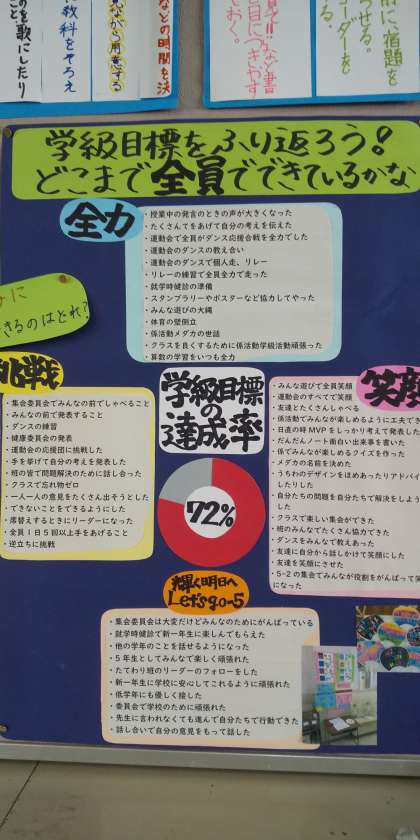 などの時間を決
教科をそろえ
のを歌にしたり
学級目標をふり返ろう!
どこまで全員でできているかな
全力
・授業中の発言のときの声が大きくなった
・たくさんてをあげて自分の考えを伝えた
・運動会で全員がダンス応援合戦を全力でした
・運動会のダンスの教え合い
・運動会のダンスで個人走、リレー
・リレーの練習で全員全力で走った
・就学時健診の準備
・スタンプラリーやポスターなど協力してやった
・みんな遊びの大縄
・体育の壁倒立
・係活動メダカの世話
・クラスを良くするために係活動学級活動頑張った
・算数の学習をいつも全力
きるのはどれ?
挑戦
・集会委員会でみんなの前でしゃべること
・みんなの前で発表すること
・ダンスの練習
・健康委員会の発表
・運動会の応援団に挑戦した
・手を挙げて自分の考えを発表した
・班の皆で問題解決のために話し合った
・クラスで忘れ物ゼロ
・一人一人の意見をたくさん出そうとした
・できないことをできるようにした
・席替えするときにリーダーになった
・全員1日5回以上手をあげること
・逆立ちに挑戦
学級目標
の
達成率
72%
笑顔
・みんな遊びで全員笑顔
・運動会のすべてで笑顔
・友達とたくさんしゃべる
・係活動でみんなが楽しめるように工夫でき
・日直の時MVPをしっかり考えて発表した
・だんだんノート面白い出来事を書いた
・係でみんなが楽しめるクイズを作った
・メダカの名前を決めた
・うちわのデザインをほめあったりアドバイ
したりした
・自分たちの問題を自分たちで解決をしよう
した
・クラスで楽しい集会ができた
・班のみんなでたくさん協力できた
・ダンスをみんなで教えあった
・友達に自分から話しかけて笑顔にした
・友達を笑顔にさせた
・5-2の集会でみんなが役割をがんばって笑
になった
輝く明日へ
Let's go-5
・集会委員会は大変だけどみんなのためにがんばっている
・就学時健診で新一年生に楽しんでもらえた
・他の学年のことを話せるようになった
・5年生としてみんなで楽しく頑張れた
・たてわり班のリーダーのフォローをした
・新一年生に学校に安心してこれるように頑張れた
・低学年にも優しく接した
・委員会で学校のために頑張れた
・先生に言われなくても進んで自分たちで行動できた
・話し合いで自分の意見をもって話した